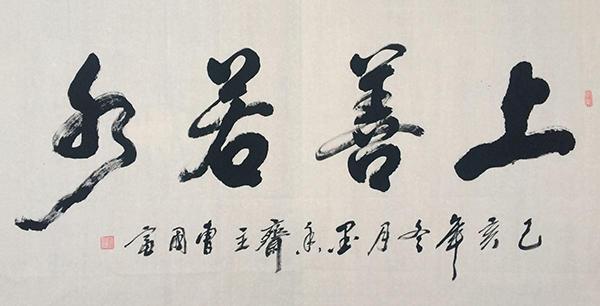 上善若水
己亥年冬月墨香齋主曹國富